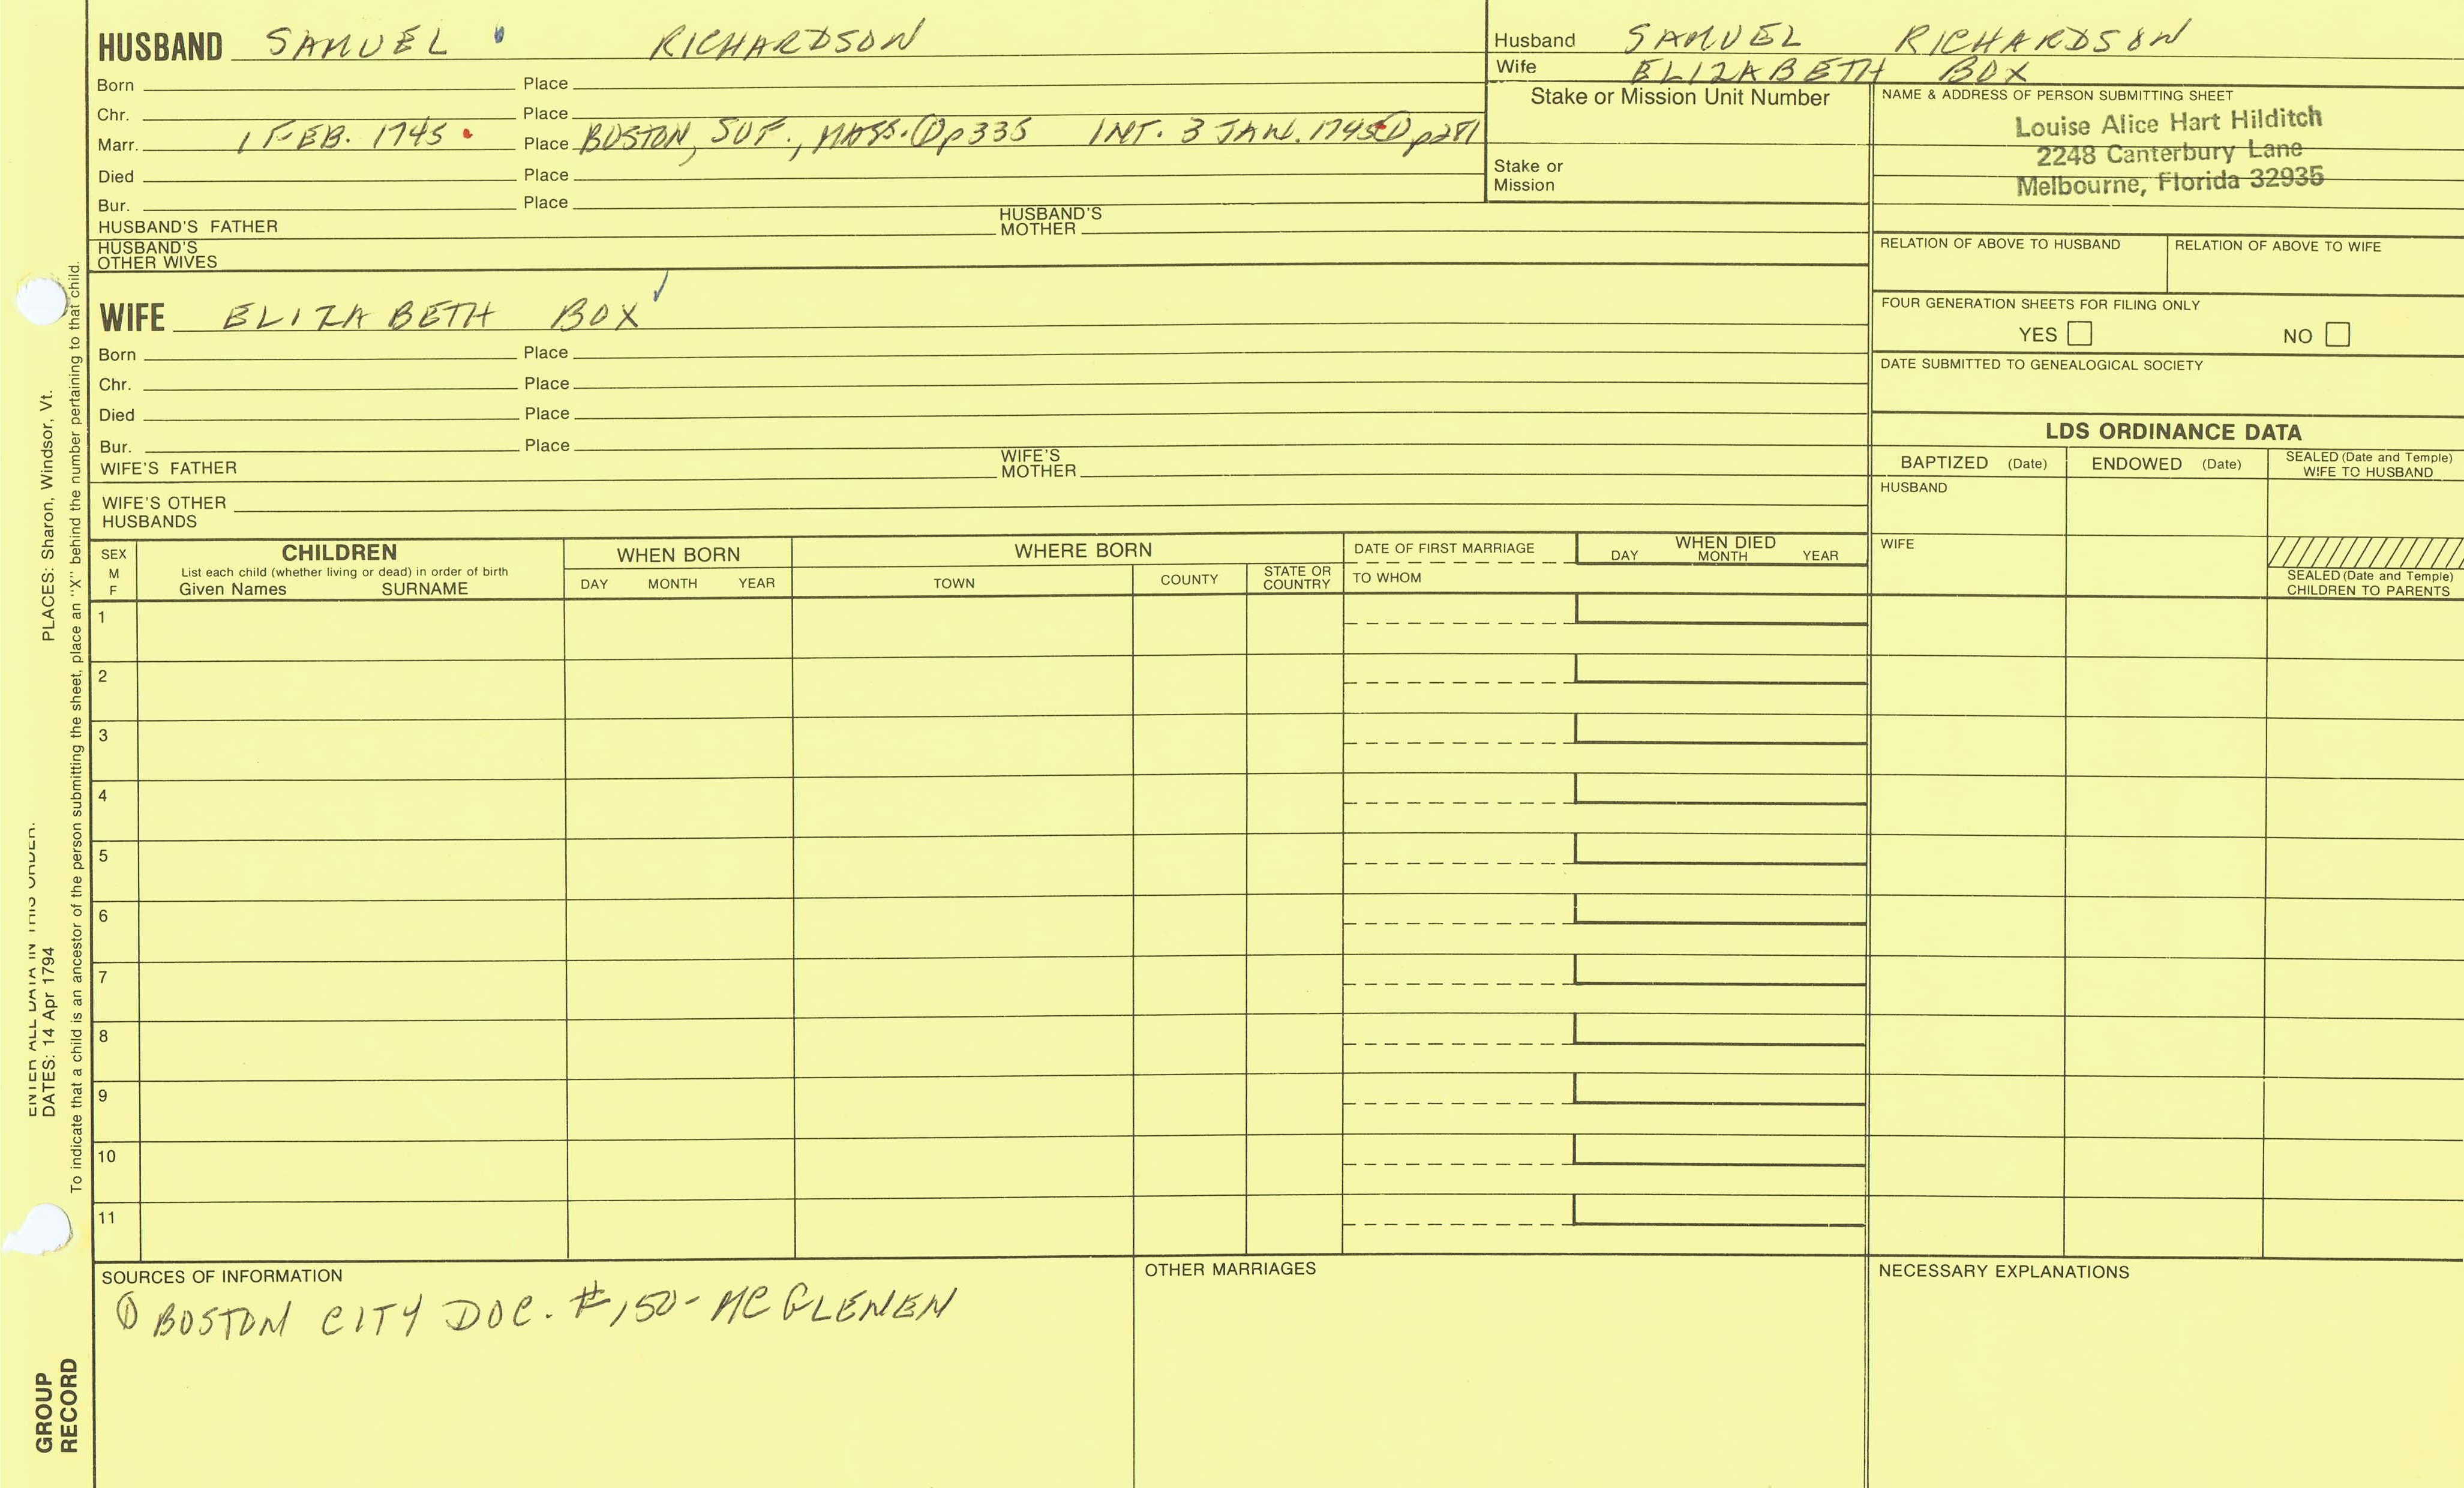 HUSBAND SAMUEL RICHARDSON
Born Place
Chr. Place
Marr. 1 FEB. 1745 Place BOSTON, SUF., MASS. ① p335 INT. 3 JAN. 1745 ① p281
Died Place
Bur. Place
HUSBAND'S FATHER HUSBAND'S MOTHER
HUSBAND'S OTHER WIVES
Husband SAMUEL RICHARDSON
Wife ELIZABETH BOX
Stake or Mission Unit Number
Stake or Mission
NAME & ADDRESS OF PERSON SUBMITTING SHEET
Louise Alice Hart Hilditch
2248 Canterbury Lane
Melbourne, Florida 32935
RELATION OF ABOVE TO HUSBAND RELATION OF ABOVE TO WIFE
FOUR GENERATION SHEETS FOR FILING ONLY
YES NO
DATE SUBMITTED TO GENEALOGICAL SOCIETY
WIFE ELIZABETH BOX
Born Place
Chr. Place
Died Place
Bur. Place
WIFE'S FATHER WIFE'S MOTHER
WIFE'S OTHER HUSBANDS
LDS ORDINANCE DATA
BAPTIZED (Date) ENDOWED (Date) SEALED (Date and Temple) WIFE TO HUSBAND
HUSBAND
WIFE
SEALED (Date and Temple) CHILDREN TO PARENTS
SEX M F
CHILDREN
List each child (whether living or dead) in order of birth
Given Names SURNAME
WHEN BORN
DAY MONTH YEAR
WHERE BORN
TOWN COUNTY STATE OR COUNTRY
DATE OF FIRST MARRIAGE
TO WHOM
WHEN DIED
DAY MONTH YEAR
1
2
3
4
5
6
7
8
9
10
11
SOURCES OF INFORMATION
① BOSTON CITY DOC. #150- MC GLENEN
OTHER MARRIAGES
NECESSARY EXPLANATIONS
ENTER ALL DATA IN THIS ORDER:
DATES: 14 Apr 1794 PLACES: Sharon, Windsor, Vt.
To indicate that a child is an ancestor of the person submitting the sheet, place an "X" behind the number pertaining to that child.
GROUP
RECORD